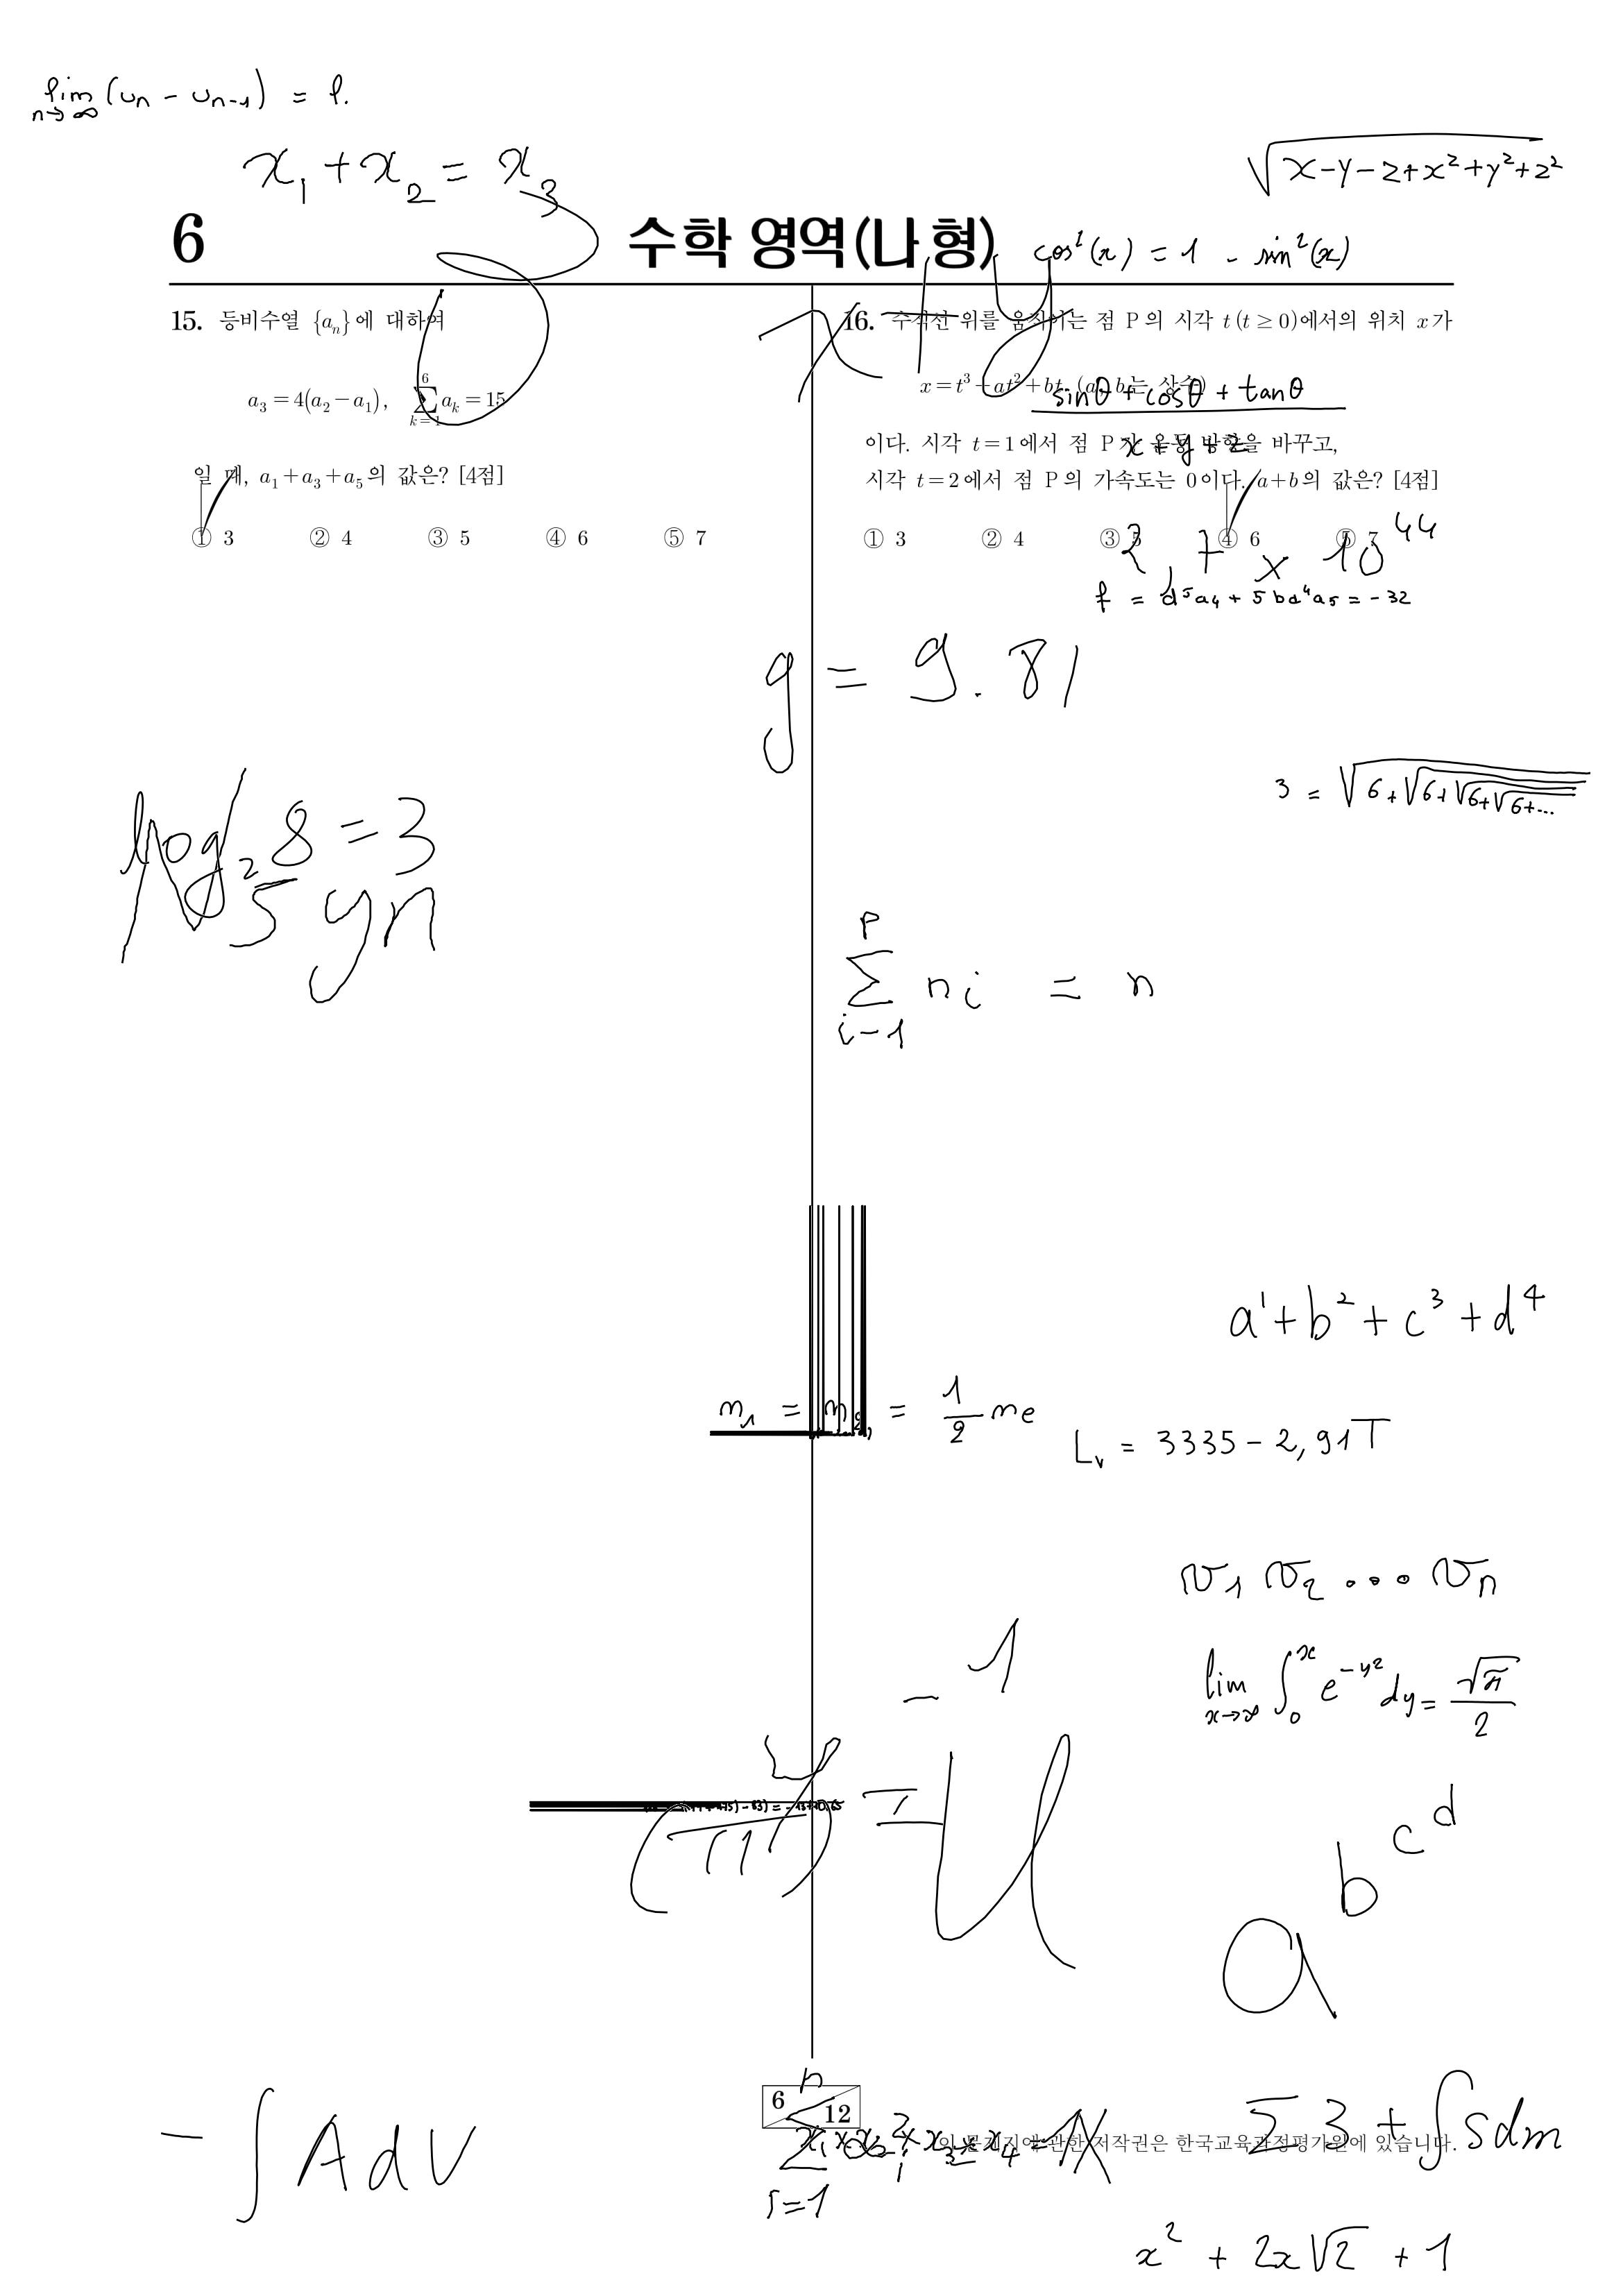 lim n→∞ (u_n - u_{n-1}) = l.
x_1 + x_2 = x_3
√(x-y-z+x²+y²+z²)
6
수학 영역(나 형)
cos²(x) = 1 - sin²(x)
15. 등비수열 {a_n}에 대하여
a_3 = 4(a_2 - a_1), ∑_{k=1}^{6} a_k = 15
일 때, a_1 + a_3 + a_5의 값은? [4점]
① 3 ② 4 ③ 5 ④ 6 ⑤ 7
x + y
16. 수직선 위를 움직이는 점 P의 시각 t (t ≥ 0)에서의 위치 x가
x = t³ + at² + bt (a, b는 상수)
sinθ + cosθ + tanθ
x + y + z
이다. 시각 t = 1에서 점 P가 운동 방향을 바꾸고,
시각 t = 2에서 점 P의 가속도는 0이다. a + b의 값은? [4점]
① 3 ② 4 ③ 5 ④ 6 ⑤ 7
2,7 × 10^44
f = d⁵a_4 + 5bd⁴a_5 = -32
g = 9.81
3 = √(6+√(6+√(6+√(6+...
log_2 8 = 3
5 yn
∑_{i-1}^{p} n_i = n
a¹ + b² + c³ + d⁴
m_1 = m_2 = 1/2 m_e
L_v = 3335 - 2,91T
v_1 v_2 ... v_n
lim x→∞ ∫_0^x e^{-y²} dy = √π/2
a^{b^{c^d}}
- ∫ A d V
6 12
x_1 x_2 x_3 x_4
i=1
∑ 3 + ∫ s d m
이 문제지에 관한 저작권은 한국교육과정평가원에 있습니다.
x² + 2x√2 + 1